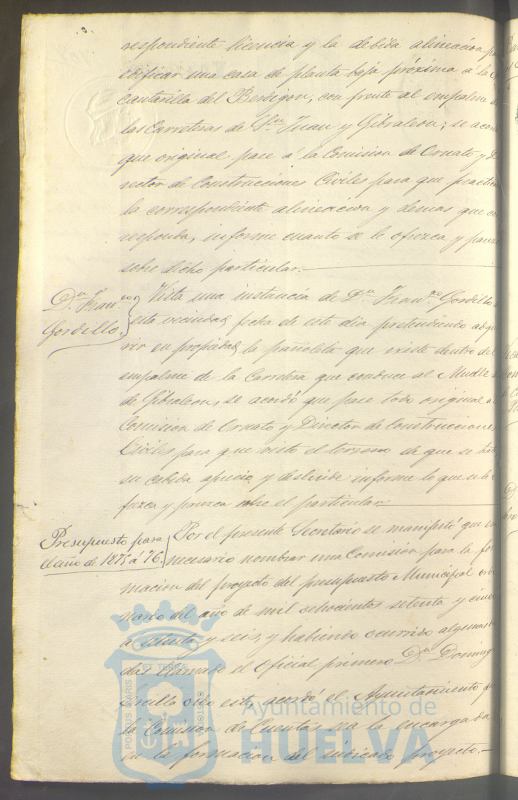 respondiente licencia y la debida alineacion p
edificar una casa de planta baja próxima á la
cantarilla del Berdigon, con frente al empalme
las Carreteras de Sn. Juan y Gibraleon; se acor
que original pase á la Comision de Ornato y Di
rector de Construcciones Civiles para que practi
la correspondiente alineacion y demas que co
rresponda, informe cuanto se le ofrezca y pa
sobre dicho particular.
Dn. Franco. Gordillo
Vista una instancia de Dn. Franco. Gordillo
esta vecindad, fecha de este dia pretendiendo adqui
rir en propiedad la pañoleta que existe dentro del
empalme de la Carretera que conduce al Muelle
de Gibraleon, se acordó que pase todo original a
Comision de Ornato y Director de Construcciones
Civiles para que visto el terreno de que se tra
su cabida aprecio y deslinde informe lo que se le
frezca y parezca sobre el particular.
Presupuesto para
el año de 1875 á 76.
Por el presente Secretario se manifestó que
necesario nombrar una Comision para la for
macion del proyecto del presupuesto Municipal or
nario del año de mil ochocientos setenta y cinco
a setenta y seis, y habiendo ocurrido algunas
das llamado el Oficial primero Dn. Doming
oido este acordó el Ayuntamiento
la Comision de Cuentas sea la encargada
en la formacion del indicado proyecto.
PORTUS MARIS ET TERRÆ CUSTODIA
Ayuntamiento de
HUELVA